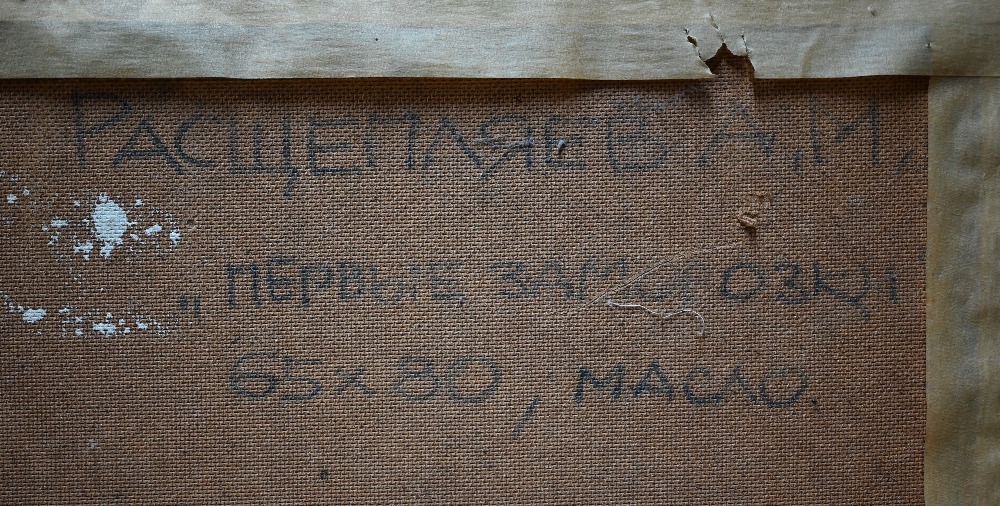 РАСЩЕПЛЯЕВ А.И.
„ПЕРВЫЕ ЗАМОРОЗКИ
65х80, МАСЛО.